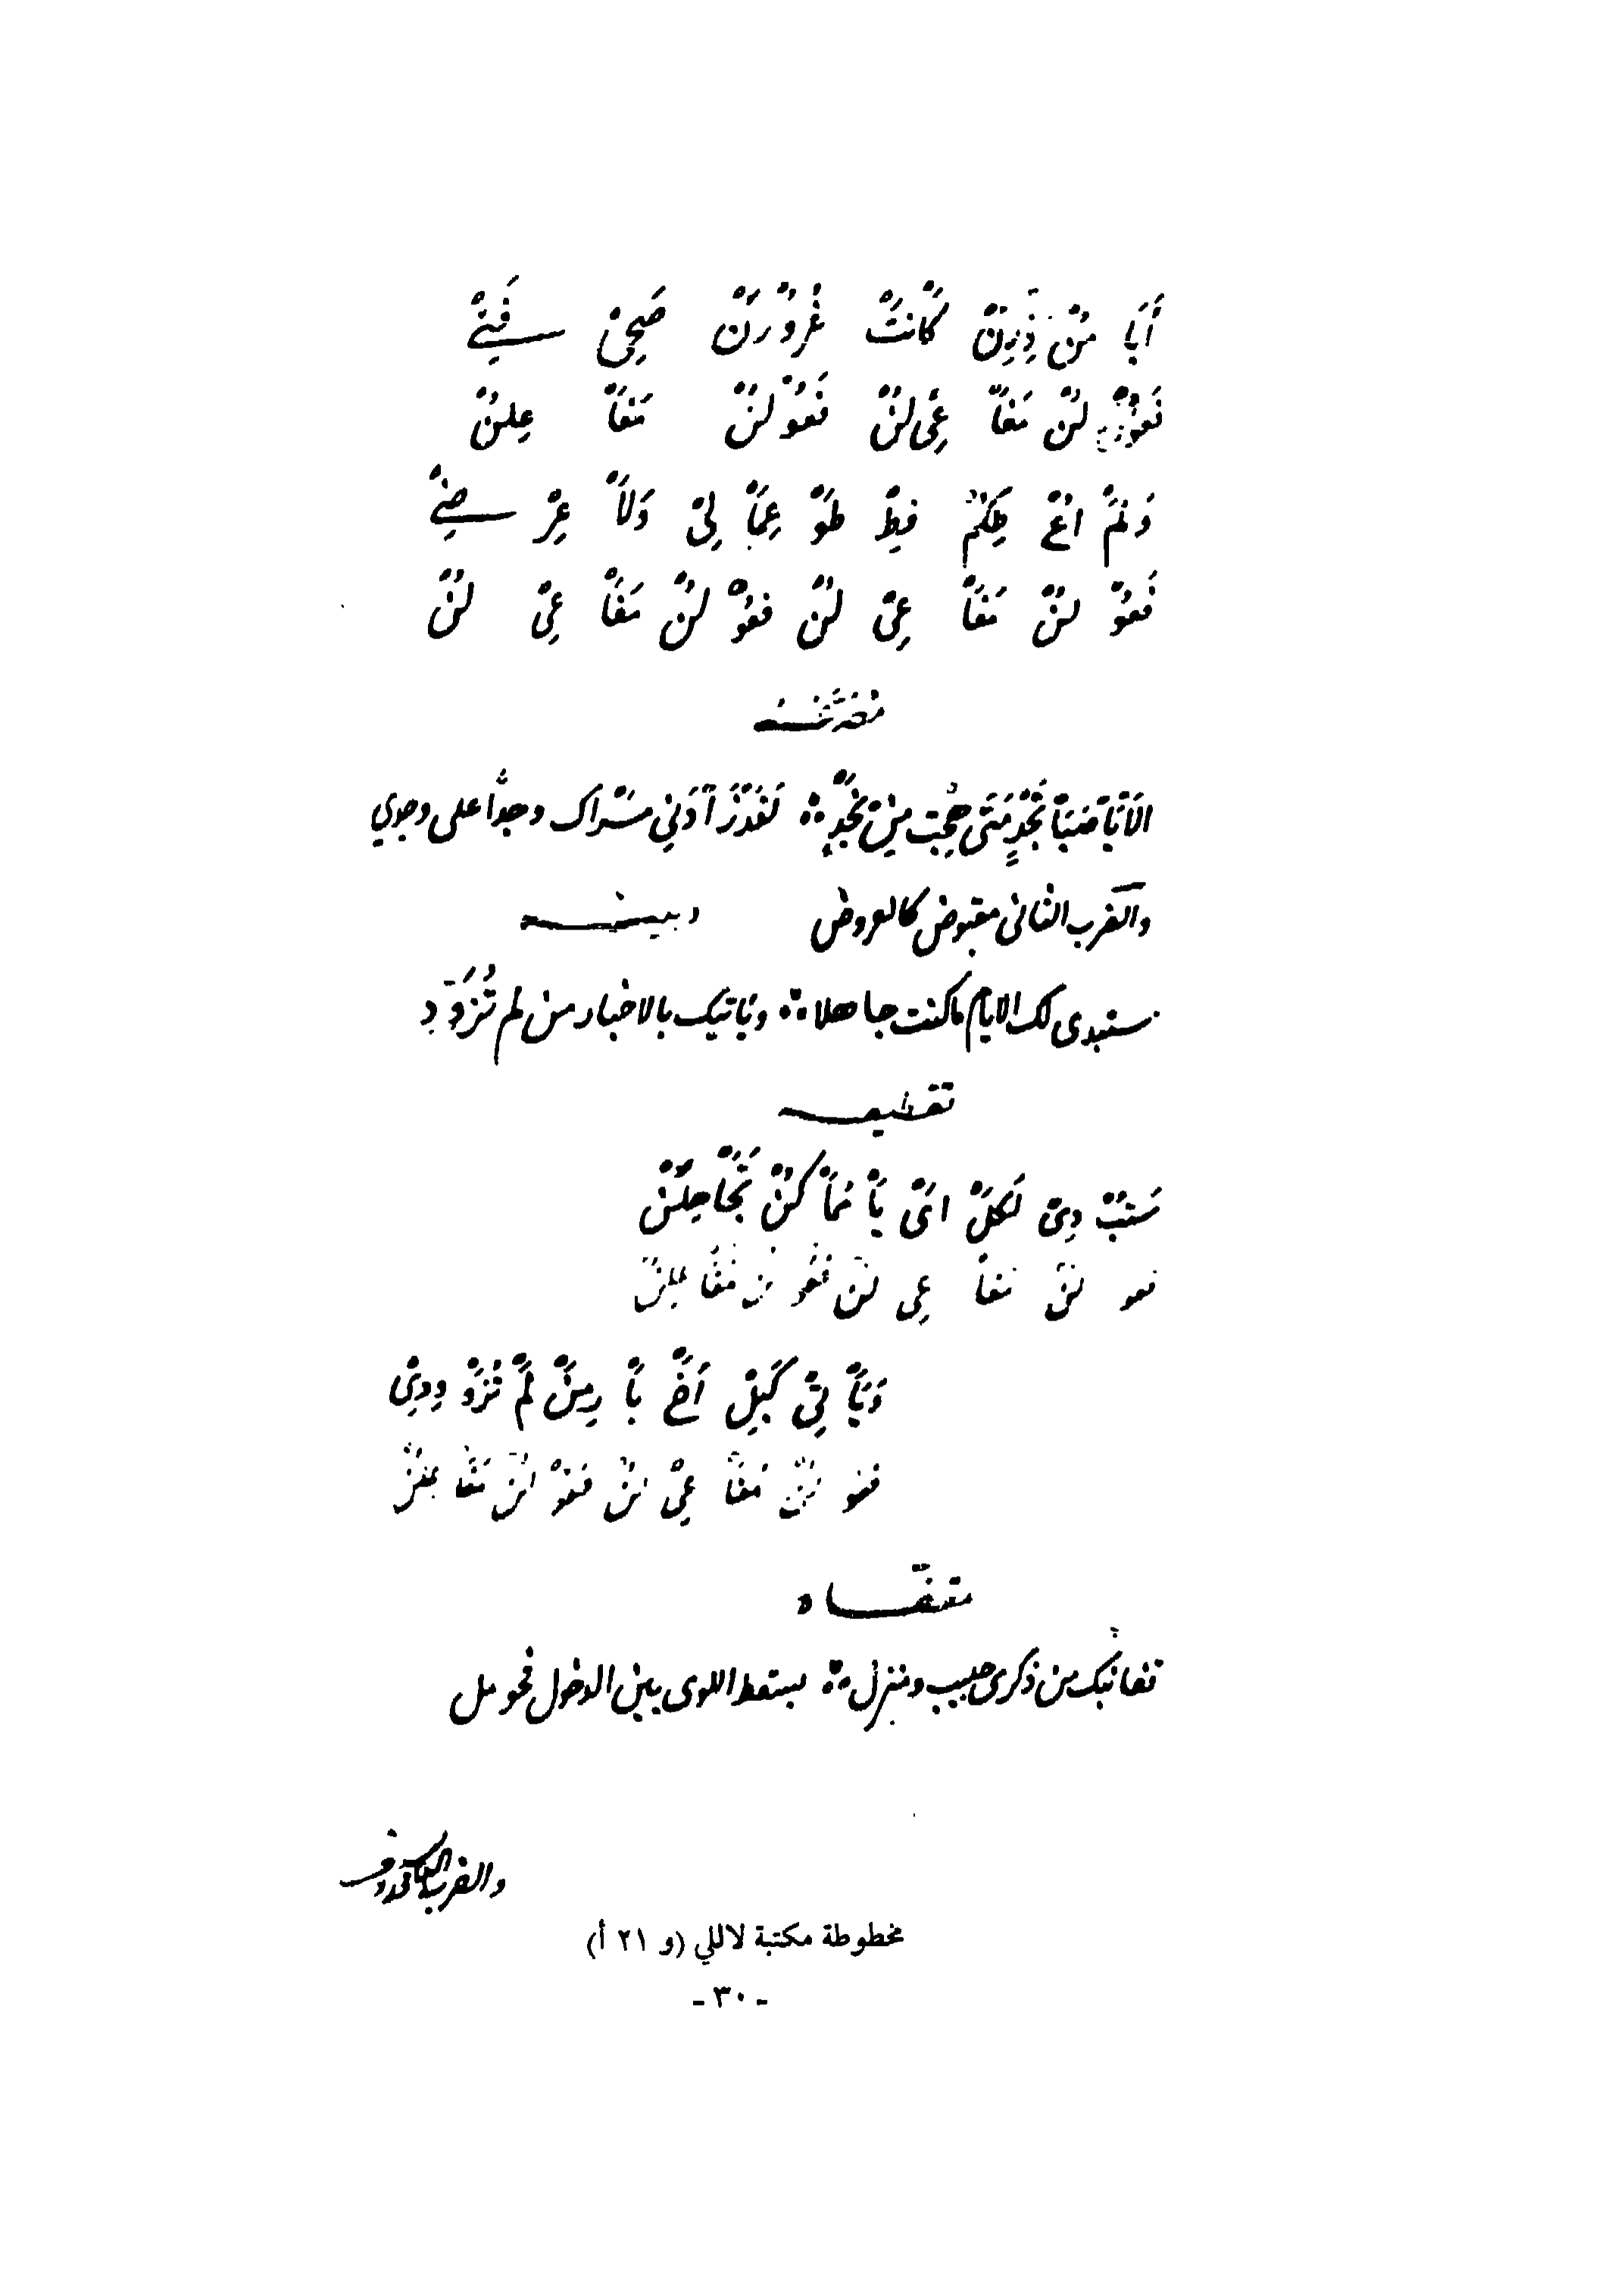 أَبَا مُنْ ذِرِنْ كَانَتْ غُرُورَنْ صَحِيْ فَتِيْ
فَعُوْ لُنْ مَفَاْ عِيْ لُنْ فَعُوْ لُنْ مَفَاْ عِلُنْ
وَلَمْ اعْ طِكُمْ فِطْ طَوْ عِمَاْ لِيْ وَلَاْ عِرْ ضِيْ
فَعُوْ لُنْ مَفَاْ عِيْ لُنْ فعُوْ لُنْ مَفَاْ عِيْ لُنْ
الَا يَا صَبَا نَجْدٍ مَتَى هِجْت مِنْ نَجْدٍ ؞ لَقَدْ زَادَنِي مَسْرَاك وجدًا على وجدي
والضرب الثانى مقبوض كالعروض وبيته
ستبدى لك الايام ما كنت جاهلا ؞ وياتيك بالاخبار من لم تُزَوّدِ
تقطيعه
سَتُبْ دِيْ لَكَلْ ايْ يَاْ مُمَاْ كُنْ تَجَاْ هِلَنْ
فعو لُنْ مفاْ عِي لُنْ فَعُو لُن مَفَا عِلُنْ
وَيَاْ تِيْ كَبِلْ اَخْ بَاْ رِمَنْ لَمْ تُزَوْ وِدِيْ
فعو لُنْ مَفَاْ عِيْ لُنْ فَعُوْ لُنْ مَفَا عِلُنْ
مثقفاه
قفا نبك من ذكرى حبيب ومنزل ؞ بسقط اللوى بين الدخول فحومل
والضرب
مخطوطة مكتبة لاللي (و ٢١ أ)
- ٣٠ -